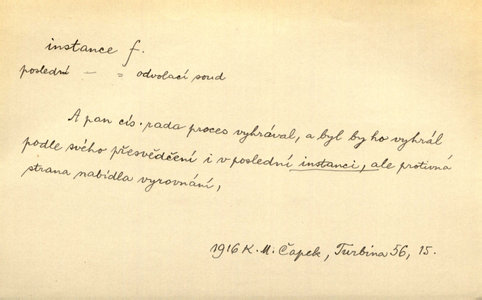 instance f.
poslední — = odvolací soud
A pan cís. rada proces vyhrával, a byl by ho vyhrál
podle svého přesvědčení i v poslední instanci, ale protivná
strana nabídla vyrovnání,
1916 K. M. Čapek, Turbina 56, 15.